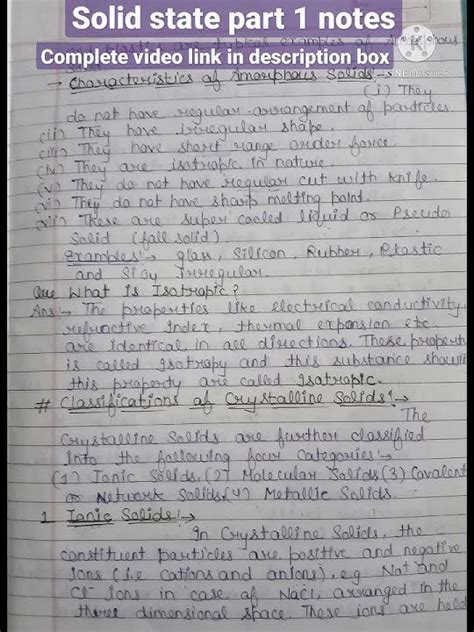 Solid state part 1 notes
Complete video link in description box
KINEMASTER
and plastic are typical examples of amorphous
→ Characteristics of Amorphous Solids :→
(i) They
do not have regular arrangement of particles
(ii) They have irregular shape.
(iii) They have short range order force.
(iv) They are isotropic in nature.
(v) They do not have regular cut with knife.
(vi) They do not have sharp melting point.
(vii) These are super cooled liquid or Pseudo
Solid (fall solid).
Examples :→ glass, Silicon, Rubber, Plastic
and irregular.
Que What is Isotropic?
Ans :→ The properties like electrical conductivity,
refractive index, thermal expansion etc
are identical in all directions. These property
is called Isotropy and this substance showing
this property are called Isotropic.
# Classifications of Crystalline Solids :→
The
Crystalline Solids are further classified
into the following four categories :→
(1) Ionic Solids, (2) Molecular Solids (3) Covalent
or Network Solids, (4) Metallic Solids.
1. Ionic Solids :→
In Crystalline Solids, the
constituent particles are positive and negative
ions (i.e cations and anions), e.g Na+ and
Cl- ions in case of NaCl, arranged in the
three dimensional space. These ions are held